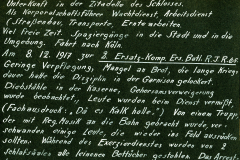 Unterkunft in der Zitadelle des Schlosses.
Als Korporalschaftsführer Wachtdienst, Arbeitsdienst
(Straßenbau, Transporte, Erntearbeiten.
Viel freie Zeit. Spaziergänge in die Stadt und in die
Umgebung. Fahrt nach Köln.
Am 8.12.1917 zur 2. Ersatz-Komp. Ers. Batl. R.J.R.
Geringe Verpflegung, Mangel an Brot, die lange Kriegs-
dauer hatte die Disziplin in der Garnison gelockert.
Diebstähle in der Kaserne, Gehorsamsverweigerung
wurde beobachtet, Leute wurden beim Dienst vermißt,
(Fachausdruck: "Der er Kalk holle"). Von einem Trupp,
der mit Reg. Musik an die Bahn gebracht wurde, ver-
schwanden einige Leute, die wieder ins Feld ausrücken
sollten. Während des Exerzierdienstes wurden von 2
alle seinen Bettücher gestohlen. Das